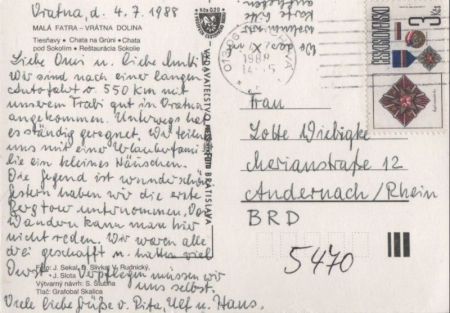 Vratna, d. 4.7.1988
MALÁ FATRA – VRÁTNA DOLINA
Tiesňavy • Chata na Grúni • Chata
pod Sokolím • Reštaurácia Sokolie
Liebe Omi u. liebe Mutti!
Wir sind nach einer langen
Autofahrt v. 550 km mit
unserem Trabi gut in Vratna
angekommen. Unterwegs hat es
ständig geregnet. Wir teilen
uns mit eine Urlauberfami-
lie ein kleines Häuschen.
Die Gegend ist wunderschön
gestern haben wir die erste
Bergtour unternommen. Von
Wandern kann man hier
nicht reden. Wir waren alle
drei geschafft u. hatten viel
Durst. Verpflegen müssen wir
uns selbst.
Viele liebe Grüße v. Rita, Ulf u. Hans.
Foto: J. Sekal, B. Slivka, V. Rudnický,
J. Slota
Výtvarný návrh: S. Slubina
Tlač: Grafobal Skalica
VYDAVATEĽSTVO
BRATISLAVA
ČESKOSLOVENSKO
3 Kčs
Frau
Lotte Wiebigke
Merianstraße 12
Andernach/Rhein
BRD
5470